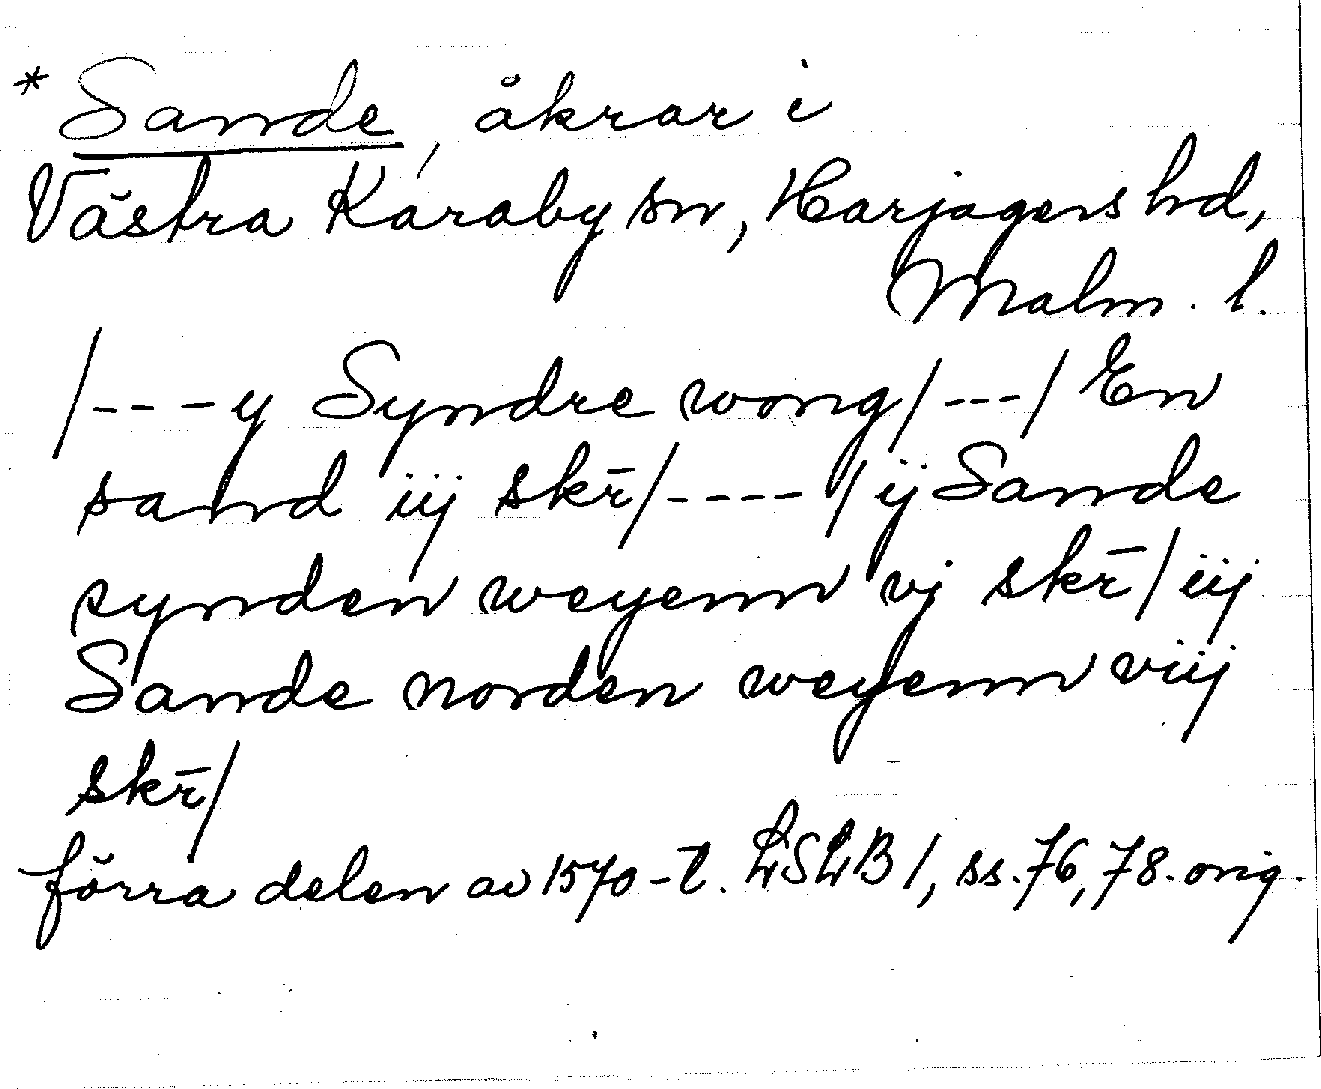 * Sande, åkrar i
Västra Karaby sn, Harjagers hd,
Malm. l.
/---y Syndre wong/---/ En
sand iij skr̄/----/ij Sande
synden weyenn vj skr̄/iij
Sande norden weyenn viij
skr̄/
förra delen av 1570-t. LSLB 1, ss. 76, 78. orig.